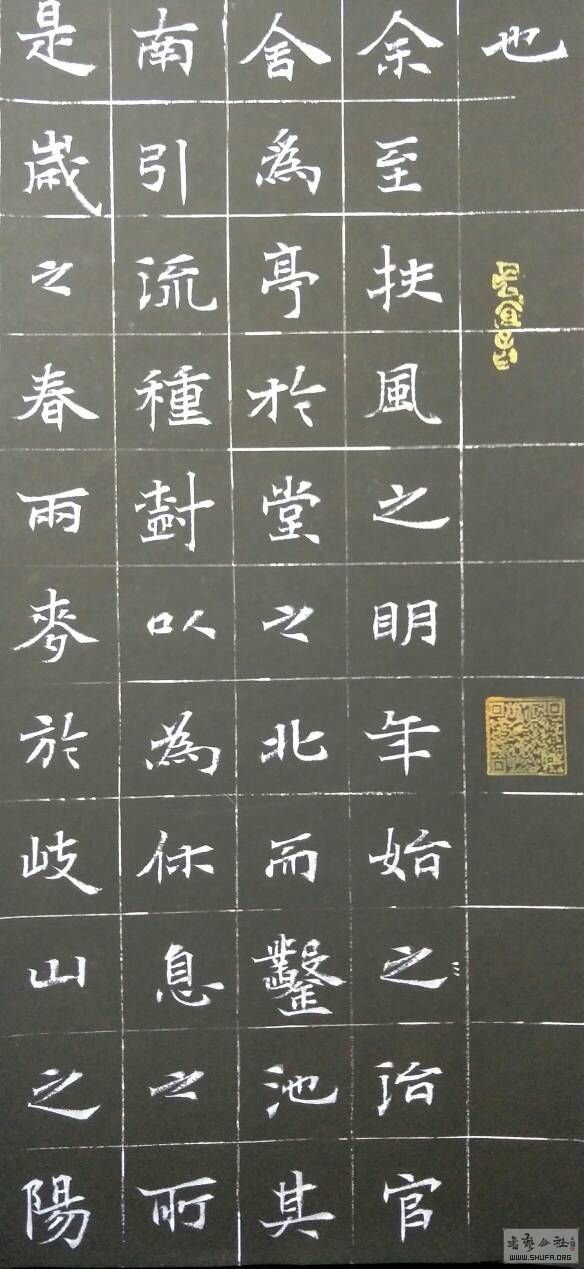 也
余至扶風之明年始之治官
舍爲亭扵堂之北而鑿池其
南引流種樹以為休息之所
是歲之春雨麥於岐山之陽
書藝公社
WWW.SHUFA.ORG